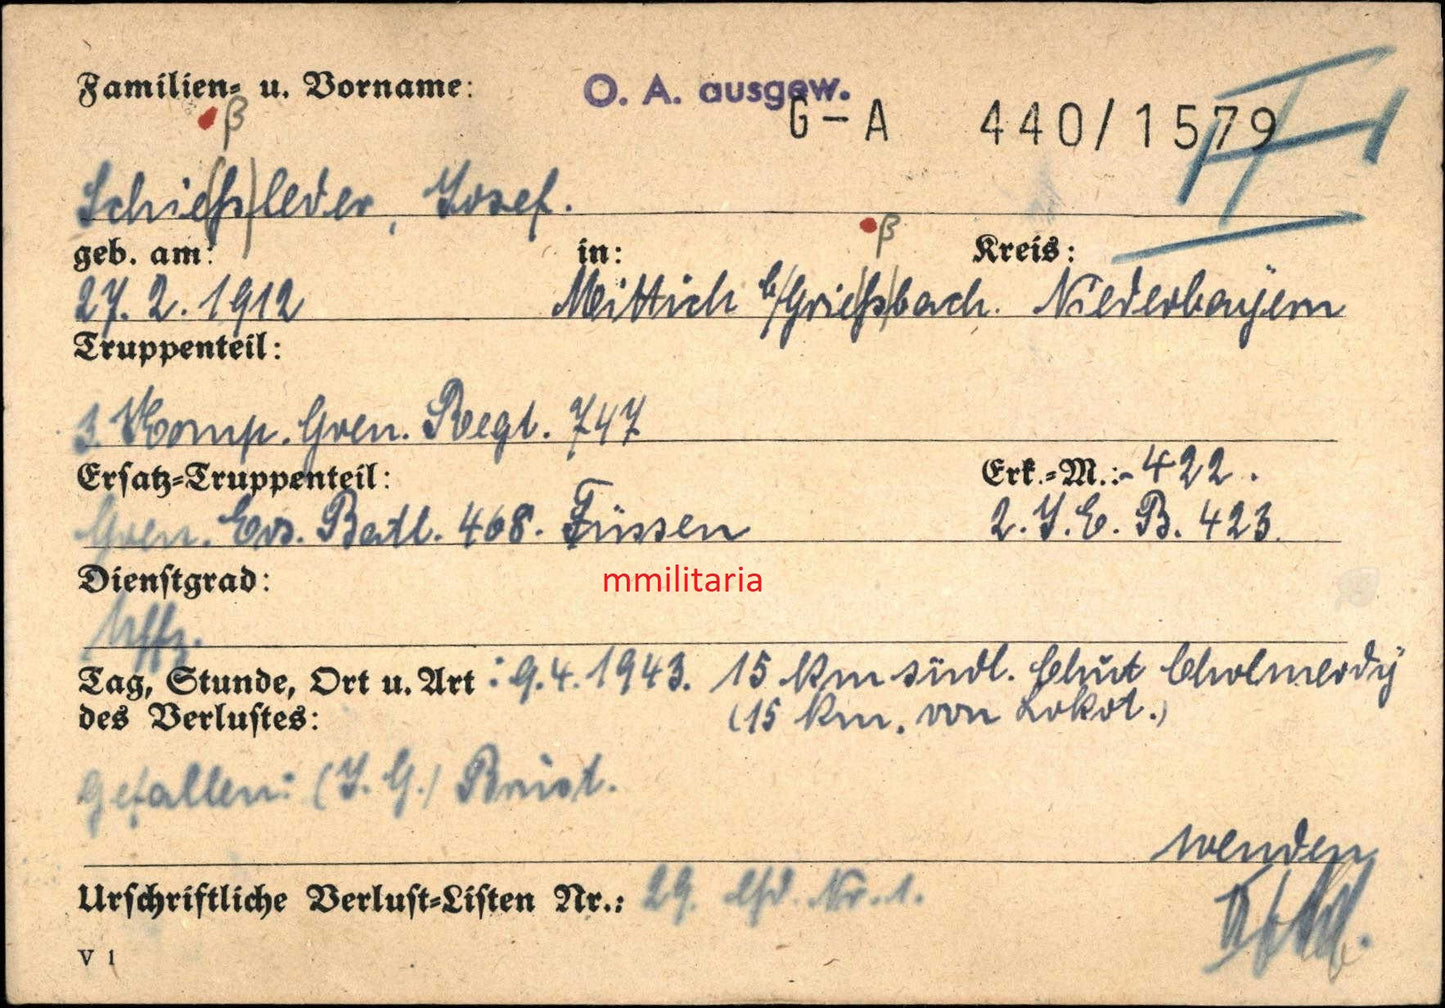 Familien- u. Vorname:
O. A. ausgew.
G-A 440/1579
ß
Schießleder, Josef.
geb. am: in: Kreis:
ß
27.2.1912 Mittich b/Grießbach. Niederbayern
Truppenteil:
3. Komp. Gren. Regt. 747
Ersatz-Truppenteil: Erk.-M.:- 422.
Gren. Ers. Batl. 468. Füssen 2. J. E. B. 423.
Dienstgrad:
mmilitaria
Uffz.
Tag, Stunde, Ort u. Art : 9.4.1943. 15 km südl. Chut Cholmerdy
des Verlustes: (15 km. von Lokot.)
gefallen: (J. G.) Brust.
wenden
Urschriftliche Verlust-Listen Nr.: 29. lfd. Nr. 1.
V 1